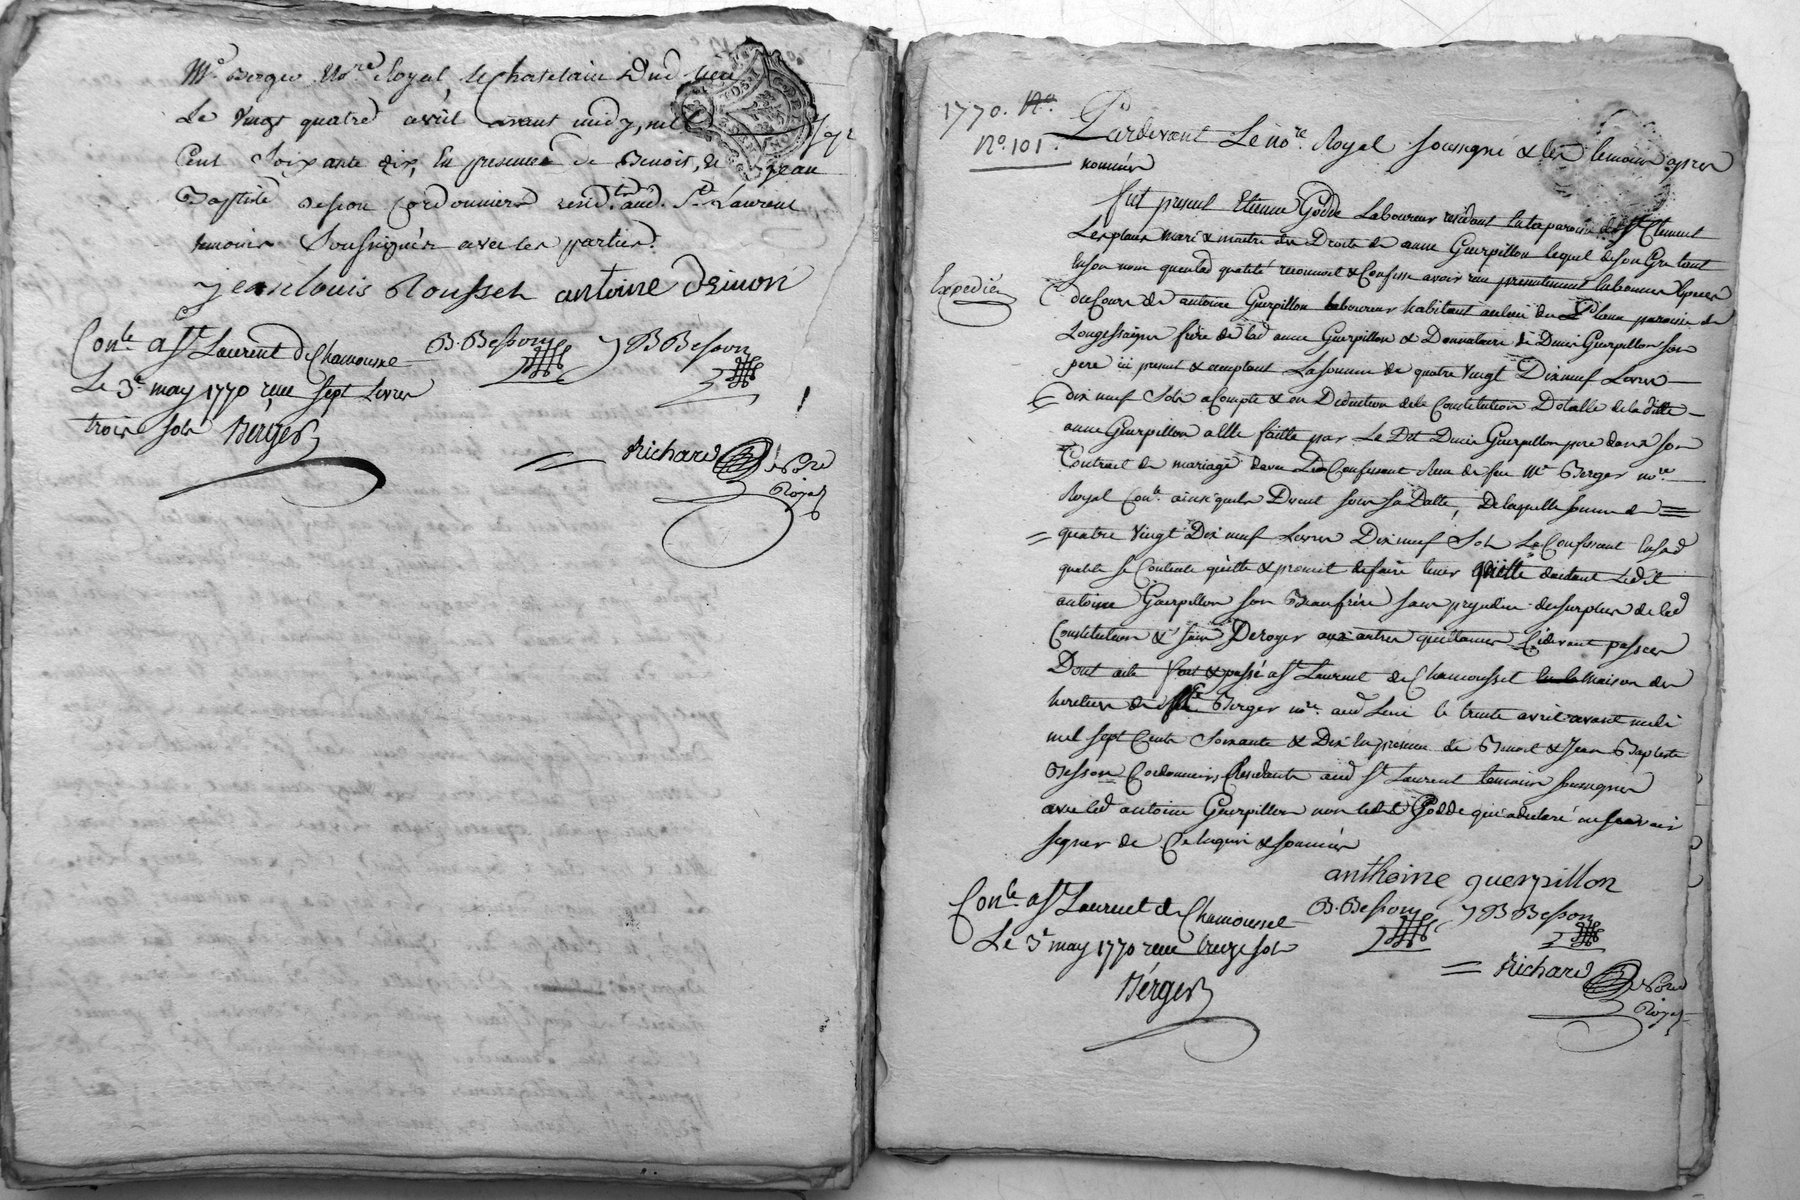 Mᵉ Berger Noʳᵉ Royal, & Chatelain Dud. lieu
Le Vingt quatre avril avant midy, mil Sept
Cent Soixante dix, En presence de Benoit, & jean
Baptiste Besson Cordonniers resid.ᵗˢ aud. Sᵗ Laurent
temoins Soussignés avec les parties.
jean louis Rousset antoine
Conˡᵉ a Sᵗ Laurent de Chamousset
Le 3ᵉ may 1770 reçu sept Livres
trois sols Berger
B. Besson J B Besson
Richard Noʳᵉ
Royal
1770. Nº
Nº. 101.
Pardevant Le noʳᵉ Royal soussigné & les temoins apres
nommés
fut present Etienne Godde Laboureur residant en la paroisse de Sᵗ Clement
Les places mari & maitre des Droits de anne Guerpillon lequel de son Gré tant
En son nom qu'en lad qualité reconnoit & Confesse avoir reçu presentement en bonnes Especes
Expediée
du Cours de antoine Guerpillon Laboureur habitant au lieu du paroisse de
Longessaigne frere de lad anne Guerpillon & Donnataire de Denis Guerpillon son
pere ici present & acceptant La somme de quatre Vingt Dix neuf Livres
dix neuf Sols a Compte & en Deduction de la Constitution Dotalle de la ditte
anne Guerpillon a elle faitte par Le Dit Denis Guerpillon pere dans son
Contrat de mariage avec Le Confessant Reçu de feu Mᵉ Berger noʳᵉ
Royal Conˡᵉ ainsi qu'ils Disent sous sa Datte, De laquelle somme de
quatre Vingt Dix neuf Livres Dix neuf Sols Le Confessant en sad
qualité se Contente quitte & promet de faire tenir quitte d'autant Ledit
antoine Guerpillon son Beaufrère sans prejudice du surplus de lad
Constitution & sans Deroger aux autres quittances Cidevant passées
Dont acte fait & passé a Sᵗ Laurent de Chamousset en la Maison des
heritiers de Mᵉ Berger noʳᵉ aud Lieu le trente avril avant midi
mil sept Cents Soixante & Dix en presence de Benoit & Jean Baptiste
Besson Cordonniers Residants aud Sᵗ Laurent temoins soussignes
avec led antoine Guerpillon non ledit Godde qui a declaré ne scavoir
signer de Ce Enquis & sommés
anthoine guerpillon
Conˡᵉ a Sᵗ Laurent de Chamousset
Le 3ᵉ may 1770 reçu treize sols
Berger
B. Besson J B Besson
Richard Noʳᵉ
Royal